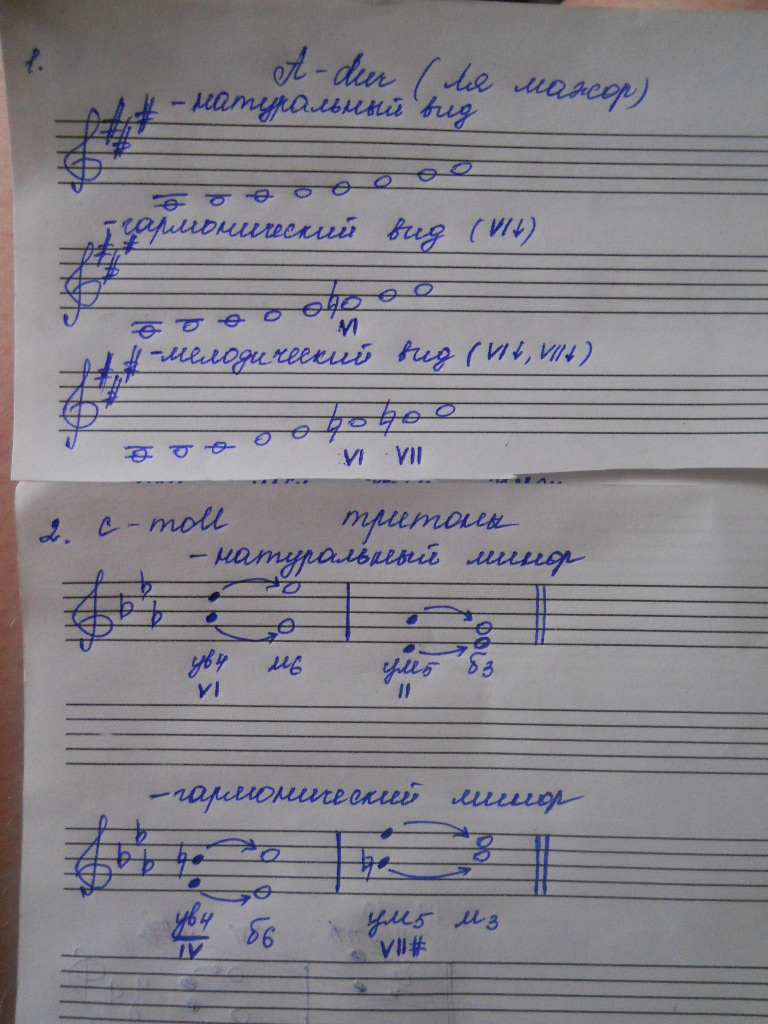 1.
A-dur (Ля мажор)
-натуральный вид
-гармонический вид (VI↓)
VI
-мелодический вид (VI↓, VII↓)
VI VII
2. c-moll тритоны
-натуральный минор
ув4 м6 ум5 б3
VI II
-гармонический минор
ув4 б6 ум5 м3
IV VII#